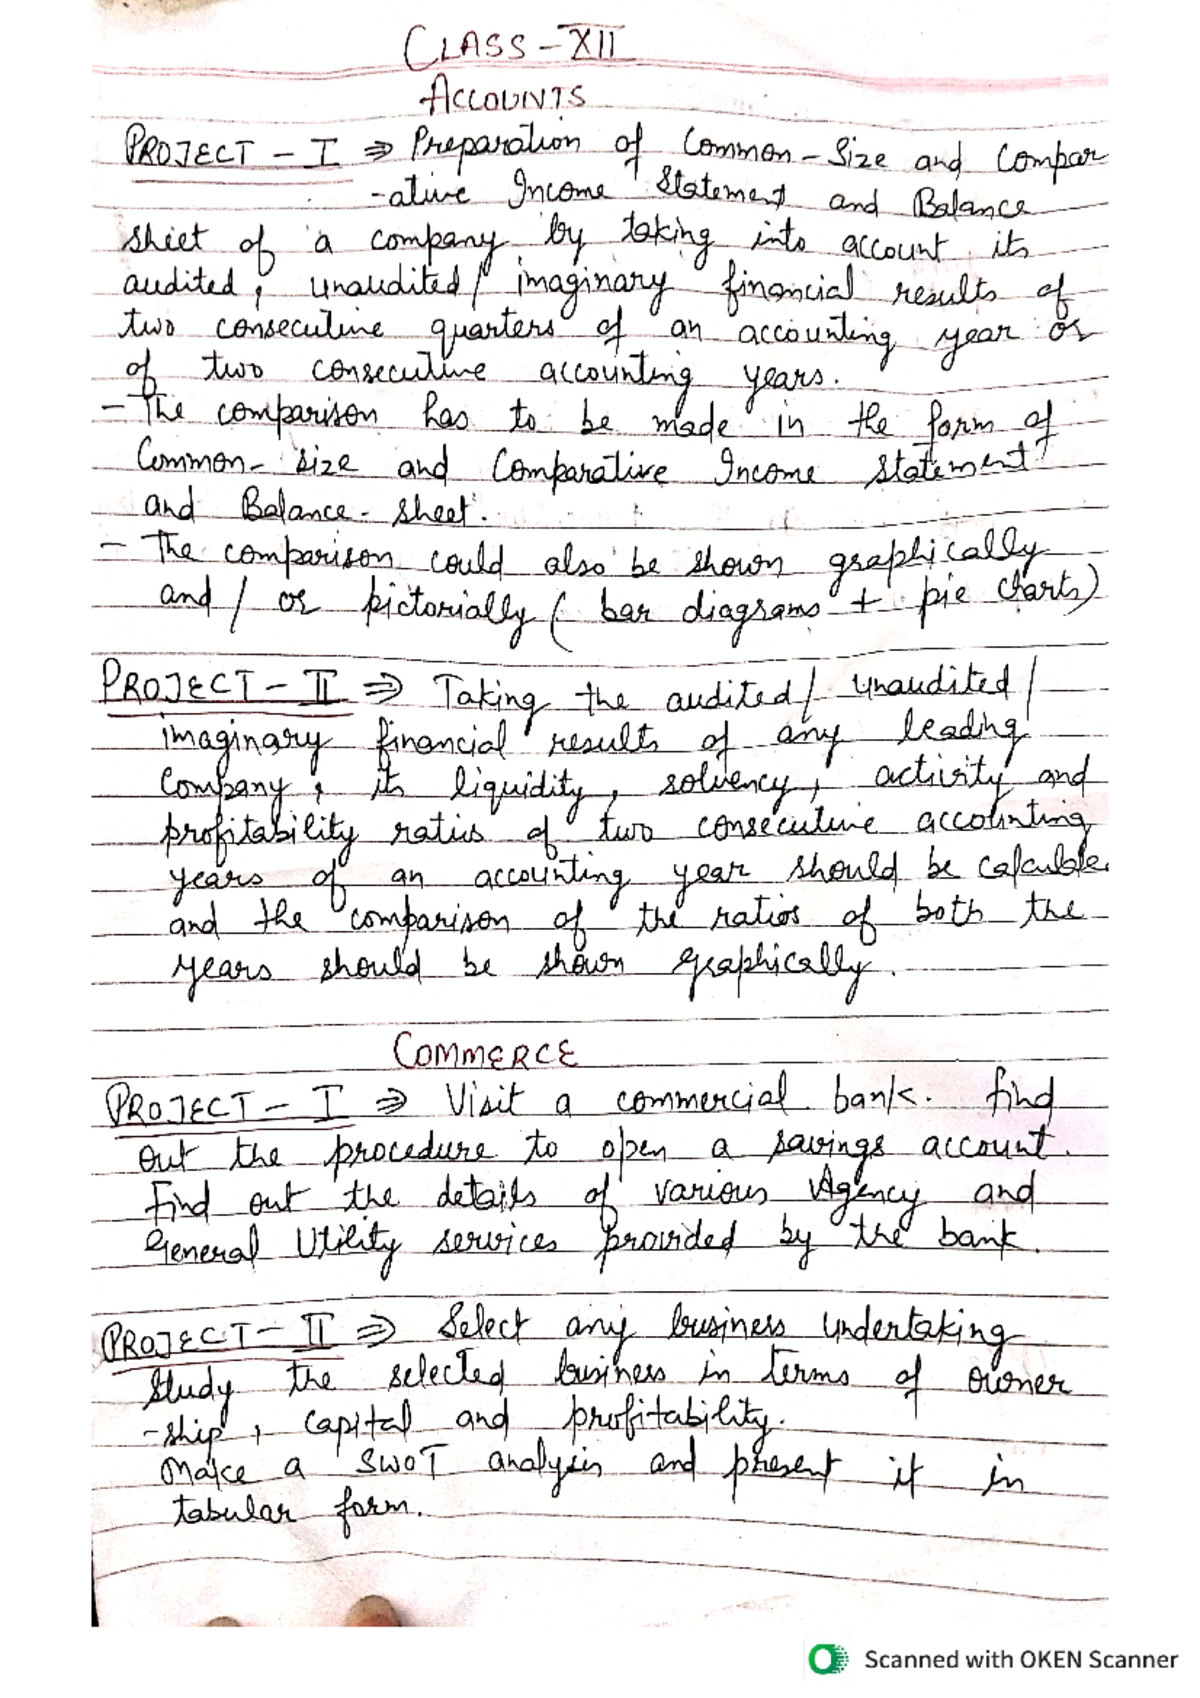 CLASS-XII
ACCOUNTS
PROJECT - I ⇒ Preparation of Common-Size and Compar
-ative Income Statement and Balance
sheet of a company by taking into account its
audited, unaudited/ imaginary financial results of
two consecutive quarters of an accounting year or
of two consecutive accounting years.
- The comparison has to be made in the form of
Common-size and Comparative Income statement
and Balance-sheet.
- The comparison could also be shown graphically
and / or pictorially ( bar diagrams + pie charts)
PROJECT - II ⇒ Taking the audited/ unaudited/
imaginary financial results of any leading
Company, its liquidity, solvency, activity and
profitability ratios of two consecutive accounting
years of an accounting year should be calculate
and the comparison of the ratios of both the
years should be shown graphically.
COMMERCE
PROJECT - I ⇒ Visit a commercial bank. find
out the procedure to open a savings account.
Find out the details of various Agency and
General Utility services provided by the bank.
PROJECT - II ⇒ Select any business undertaking
Study the selected business in terms of owner
-ship, capital and profitability.
Make a SWOT analysis and present it in
tabular form.
Scanned with OKEN Scanner